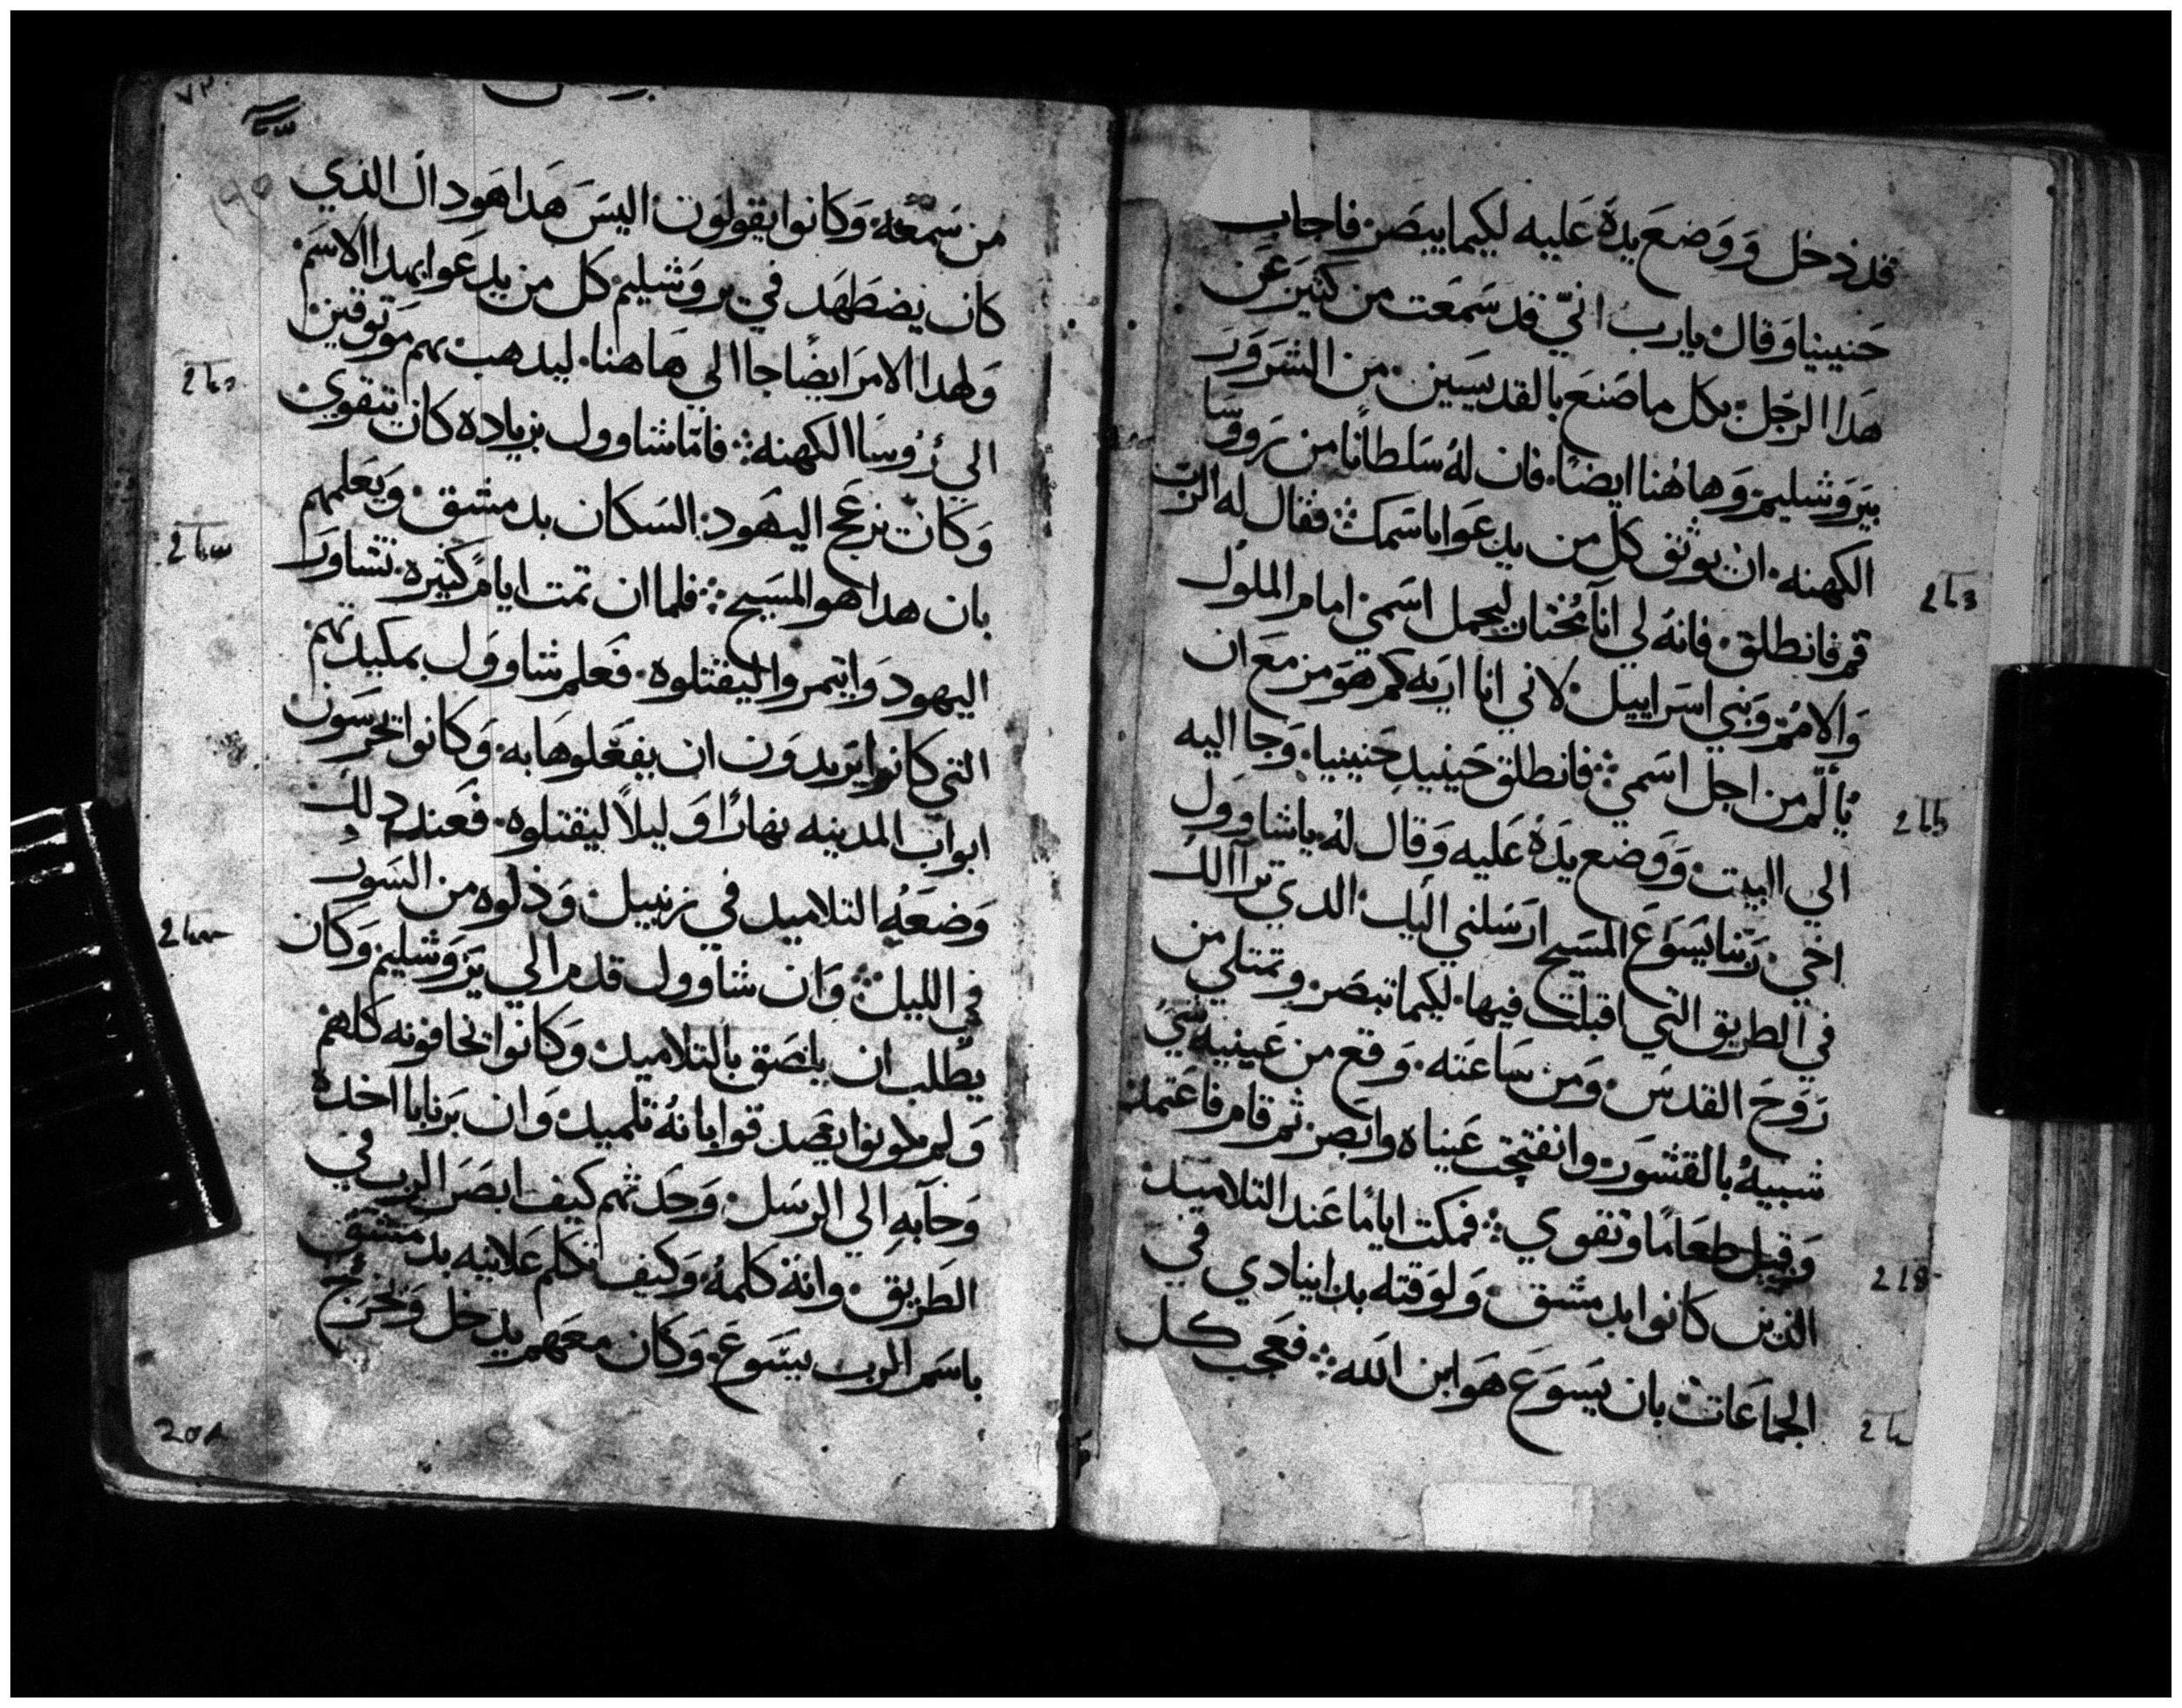 قد دخل ووضع يده عليه لكيما يبصر فاجاب
حنينيا وقال يارب اني قد سمعت من كثير عن
هدا الرجل بكل ما صنع بالقديسين من الشرور
بيروشليم وهاهنا ايضا فان له سلطانا من روسا
الكهنه ان يوثق كل من يدعوا باسمك فقال له الرب
قم فانطلق فانه لي انآ مختار ليحمل اسمي امام الملوك
والامم وبني اسراييل لاني انا اريه كم هو مزمع ان
يألم من اجل اسمي فانطلق حينيد حنينيا وجا اليه
الي البيت ووضع يده عليه وقال له ياشاوول
اخي ربنا يسوع المسيح ارسلني اليك الدي ترآا لك
في الطريق التي اقبلت فيها لكيما تبصر وتمتلي من
روح القدس ومن ساعته وقع من عينيه شي
شبيه بالقشور وانفتحت عيناه وابصر ثم قام فاعتمد
وقبل طعاما وتقوي فمكت اياما عند التلاميد
الذين كانوا بدمشق ولوقته بدا ينادي في
الجماعات بان يسوع هو ابن الله فعجب كل
من سمعه وكانوا يقولون اليس هدا هو داك الذي
كان يضطهد في يروشليم كل من يدعوا بهدا الاسم
ولهدا الامر ايضا جا الي هاهنا ليدهب بهم موتوقين
الي رؤسا الكهنه فاما شاوول بزياده كان يتقوي
وكان يزعج اليهود السكان بدمشق ويعلمهم
بان هدا هو المسيح فلما ان تمت ايام كثيره تشاور
اليهود وايتمروا ليقتلوه فعلم شاوول بمكيدتهم
التي كانوا يريدون ان يفعلوها به وكانوا يحرسون
ابواب المدينه نهارا وليلا ليقتلوه فعند دلك
وضعه التلاميد في زنبيل ودلوه من السور
في الليل وان شاوول قدم الي يروشليم وكان
يطلب ان يلصق بالتلاميد وكانوا يخافونه كلهم
ولم يكونوا يصدقوا بانه تلميد وان برنابا اخده
وجآ به الي الرسل وحدتهم كيف ابصر الرب في
الطريق وانه كلمه وكيف تكلم علانيه بدمشق
باسم الرب يسوع وكان معهم يدخل ويخرج